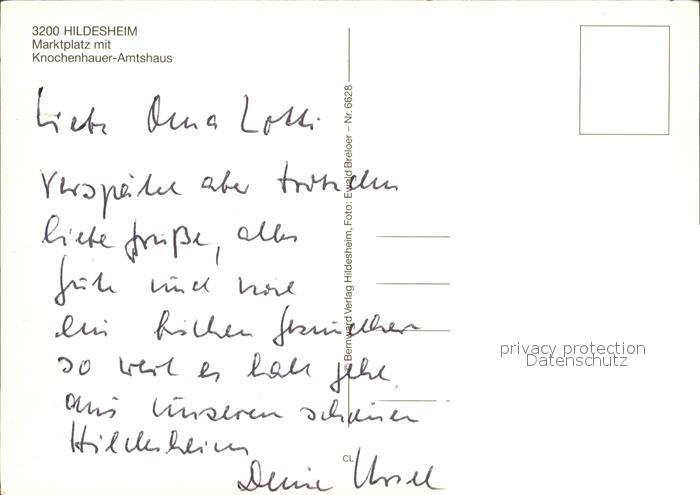 3200 HILDESHEIM
Marktplatz mit
Knochenhauer-Amtshaus
Liebe Oma Lotti
Verspätete aber trotzdem
liebe Grüße, alles
Gute und vor
ein bißchen Gesundheit
so weit es halt geht.
aus unserem schönen
Hildesheim
Deine Ursel
© Bernward Verlag Hildesheim, Foto: Ewald Breloer – Nr. 6628
CL
privacy protection
Datenschutz